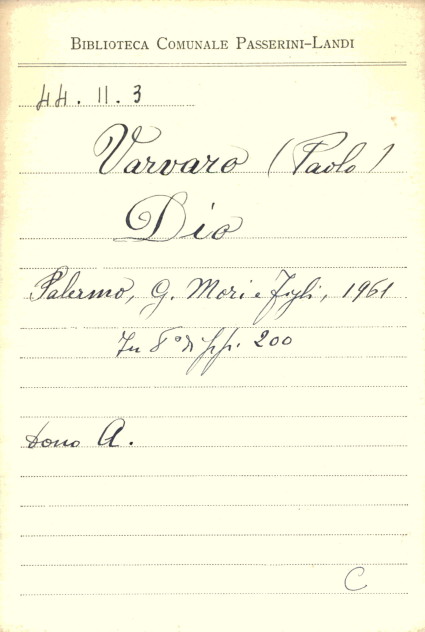 BIBLIOTECA COMUNALE PASSERINI-LANDI
44. II. 3
Varvaro (Paolo)
Dio
Palermo, G. Mori e Figli, 1961
In 8° di pp. 200
Dono A.
C